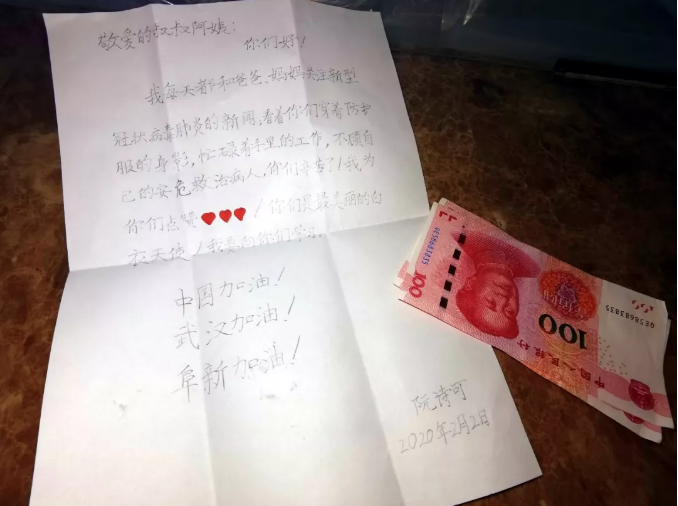 敬爱的叔叔阿姨:
你们好!
我每天都和爸爸、妈妈关注新型
冠状病毒肺炎的新闻,看着你们穿着防护
服的身影,忙碌着手里的工作,不顾自
己的安危救治病人,你们辛苦了!我为
你们点赞❤❤❤!你们是最美丽的白
衣天使!我要向你们学习。
中国加油!
武汉加油!
阜新加油!
阮诗可
2020年2月2日
100
QE58683835
中国人民银行
100
QE58683835